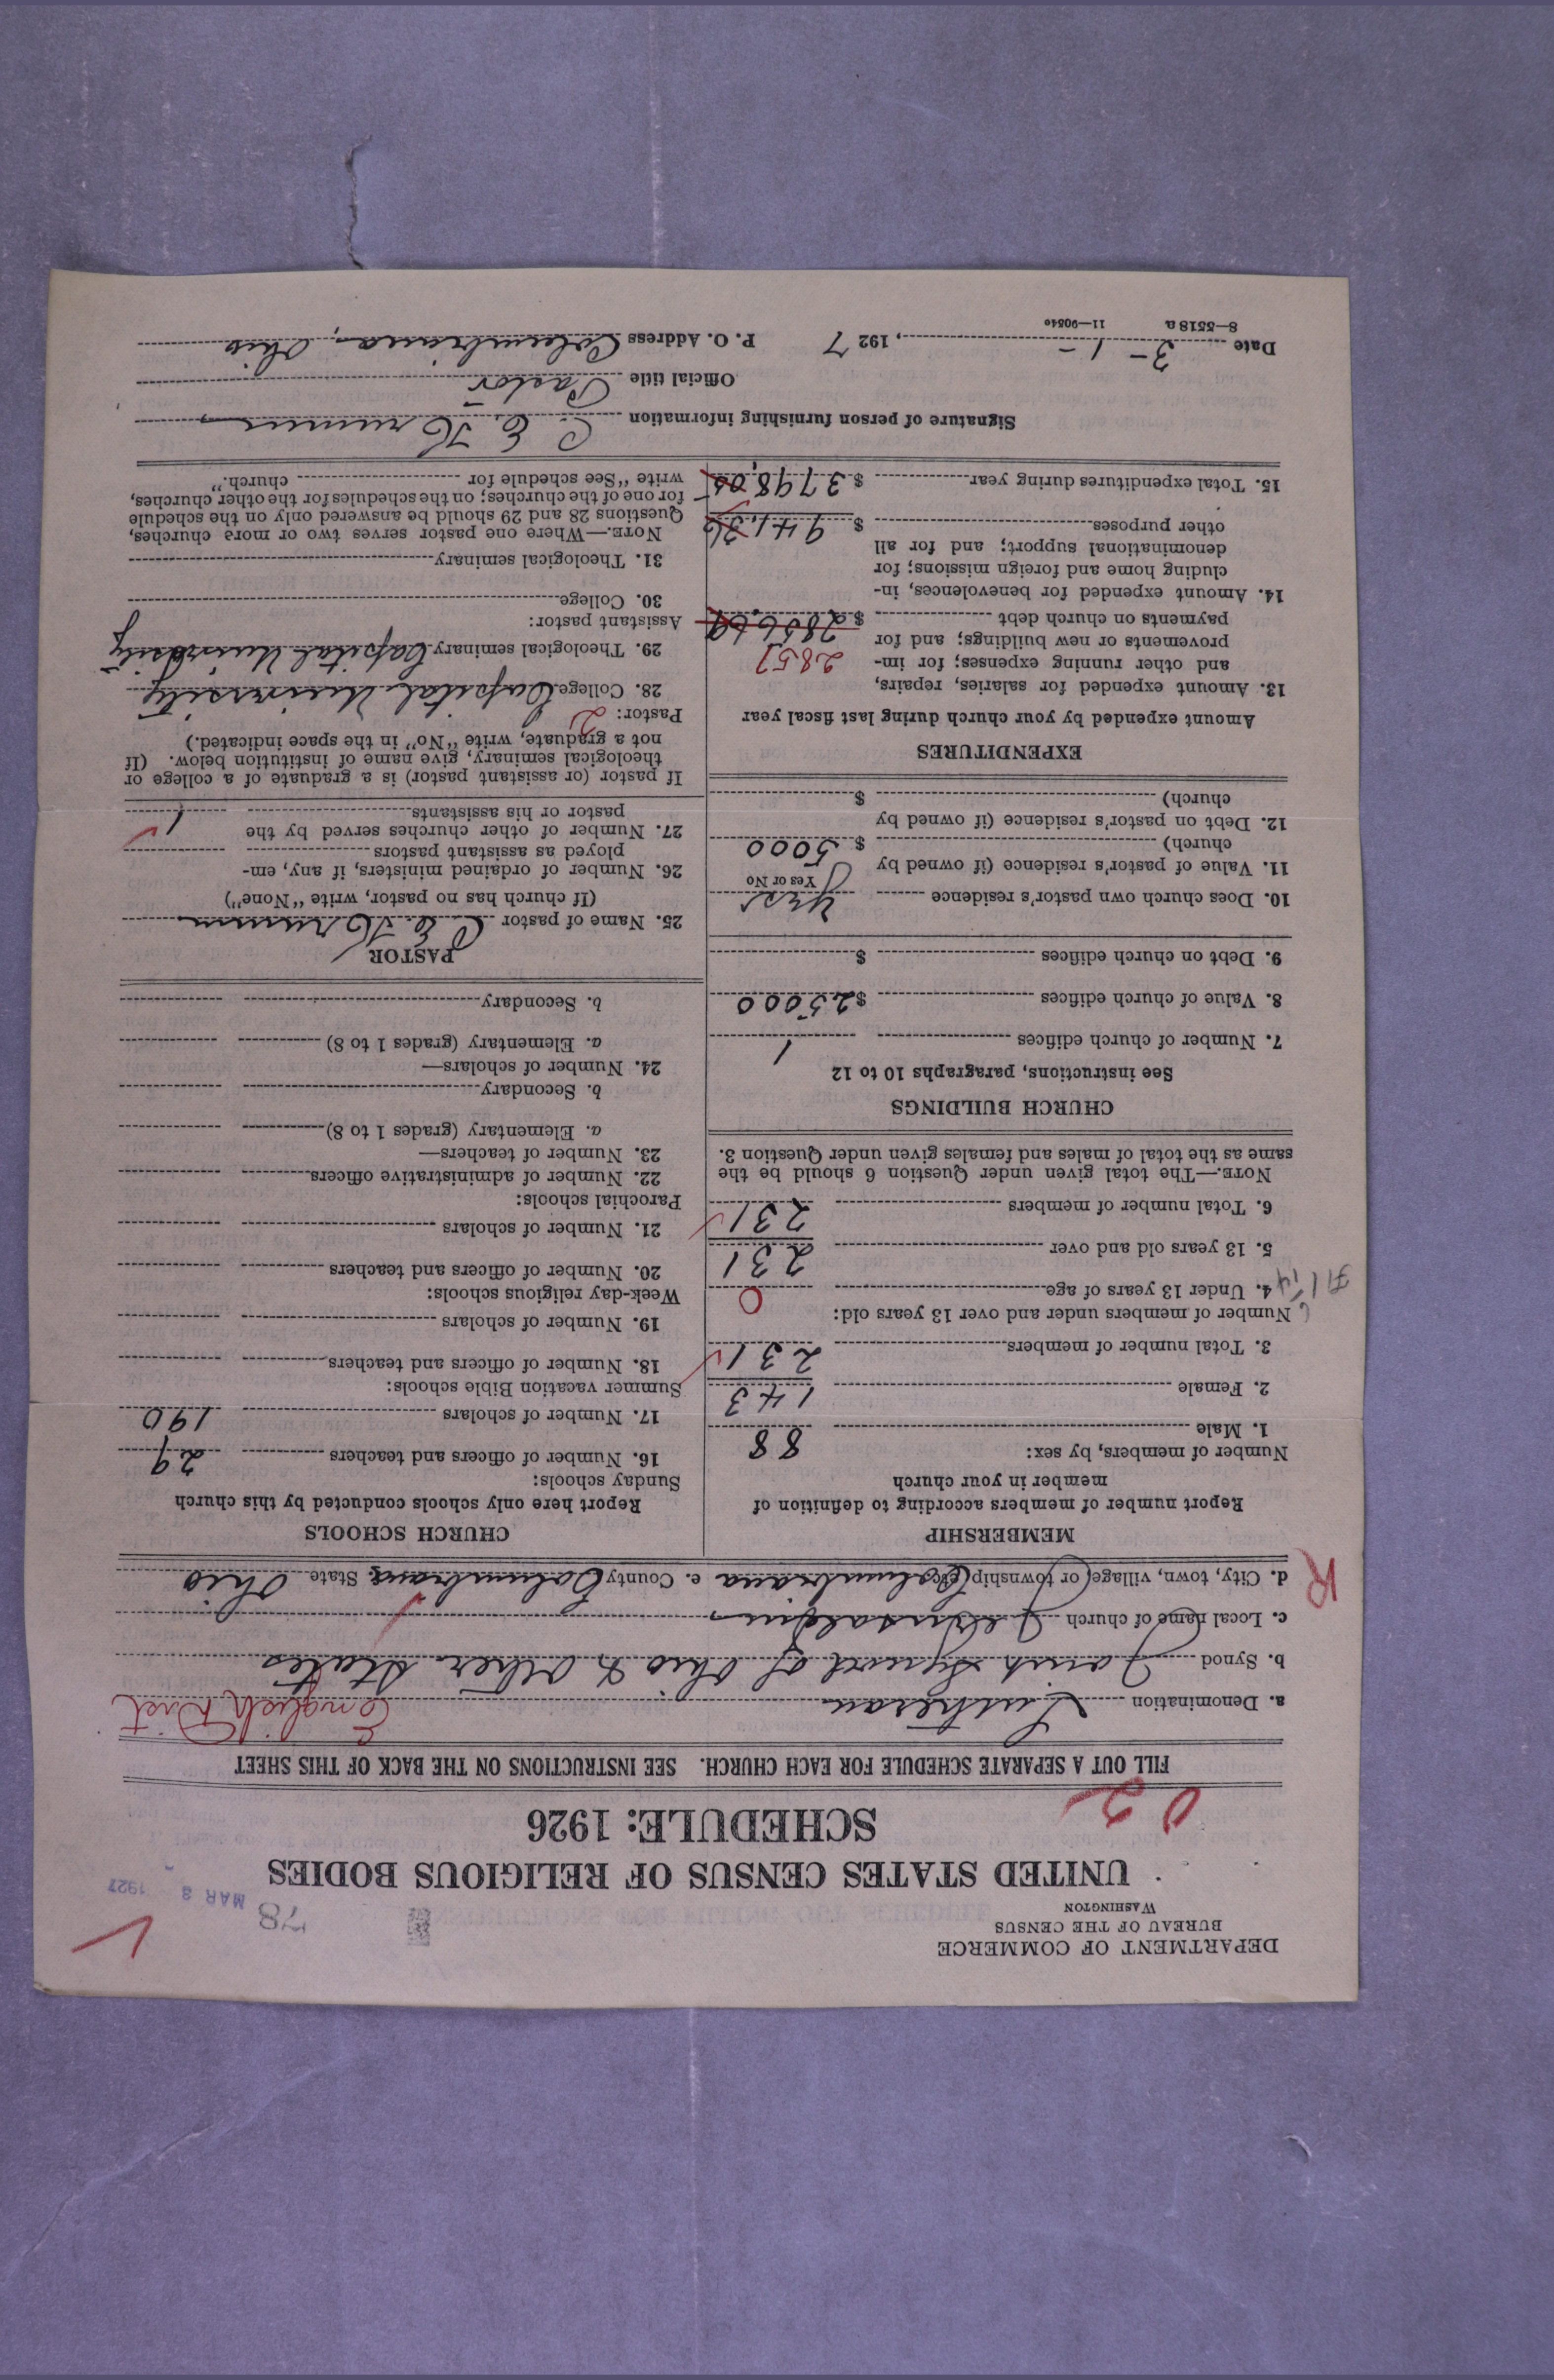 DEPARTMENT OF COMMERCE
BUREAU OF THE CENSUS
WASHINGTON
78
MAR 3 1927
UNITED STATES CENSUS OF RELIGIOUS BODIES
SCHEDULE: 1926
0 2
FILL OUT A SEPARATE SCHEDULE FOR EACH CHURCH. SEE INSTRUCTIONS ON THE BACK OF THIS SHEET
a. Denomination Lutheran English Dist
b. Synod Joint Synod of Ohio & Other States
c. Local name of church Jerusalem
R
d. City, town, village (or township, etc.) Columbiana e. County Columbiana State Ohio
MEMBERSHIP
Report number of members according to definition of
member in your church
Number of members, by sex:
1. Male 88
2. Female 143
3. Total number of members 231
Number of members under and over 13 years old:
4. Under 13 years of age 0
5. 13 years old and over 231
6. Total number of members 231
NOTE.—The total given under Question 6 should be the
same as the total of males and females given under Question 3.
CHURCH BUILDINGS
See instructions, paragraphs 10 to 12
7. Number of church edifices 1
8. Value of church edifices $25000
9. Debt on church edifices $
10. Does church own pastor's residence Yes
Yes or No
11. Value of pastor's residence (if owned by
church) $5000
12. Debt on pastor's residence (if owned by
church) $
EXPENDITURES
Amount expended by your church during last fiscal year
13. Amount expended for salaries, repairs,
and other running expenses; for im- 2857
provements or new buildings; and for
payments on church debt $2856.69
14. Amount expended for benevolences, in-
cluding home and foreign missions; for
denominational support; and for all
other purposes $941.36
15. Total expenditures during year $3798.05
CHURCH SCHOOLS
Report here only schools conducted by this church
Sunday schools:
16. Number of officers and teachers 29
17. Number of scholars 190
Summer vacation Bible schools:
18. Number of officers and teachers
19. Number of scholars
Week-day religious schools:
20. Number of officers and teachers
21. Number of scholars
Parochial schools:
22. Number of administrative officers
23. Number of teachers—
a. Elementary (grades 1 to 8)
b. Secondary
24. Number of scholars—
a. Elementary (grades 1 to 8)
b. Secondary
PASTOR
25. Name of pastor C. E. Krumm
(If church has no pastor, write "None")
26. Number of ordained ministers, if any, em-
ployed as assistant pastors
27. Number of other churches served by the
pastor or his assistants 1
If pastor (or assistant pastor) is a graduate of a college or
theological seminary, give name of institution below. (If
not a graduate, write "No" in the space indicated.)
Pastor: 2
28. College Capital University
29. Theological seminary Capital University
Assistant pastor:
30. College
31. Theological seminary
NOTE.—Where one pastor serves two or more churches,
Questions 28 and 29 should be answered only on the schedule
for one of the churches; on the schedules for the other churches,
write "See schedule for church."
Signature of person furnishing information C. E. Krumm
Official title Pastor
Date 3-1-, 1927 P. O. Address Columbiana, Ohio
8—5518 a 11—9054o